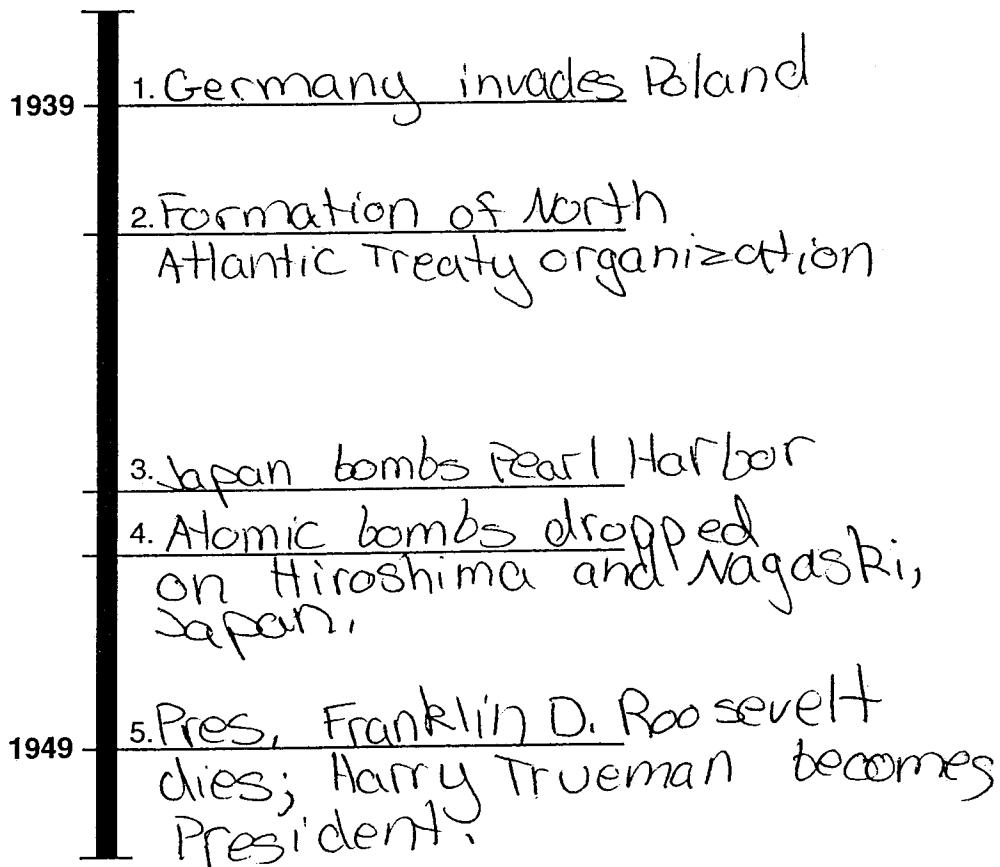 1939
1. Germany invades Poland
2. Formation of North
Atlantic Treaty organization
3. Japan bombs Pearl Harbor
4. Atomic bombs dropped
on Hiroshima and Nagaski,
Japan.
1949
5. Pres. Franklin D. Roosevelt
dies; Harry Trueman becomes
President.